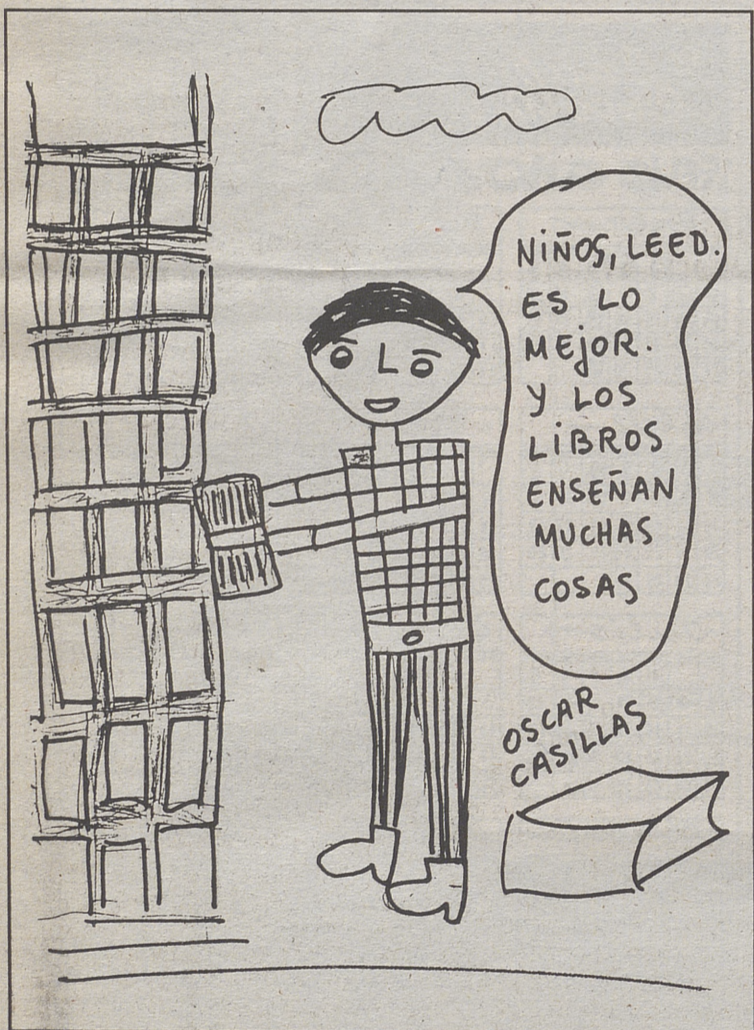 NIÑOS, LEED.
ES LO
MEJOR.
Y LOS
LIBROS
ENSEÑAN
MUCHAS
COSAS
OSCAR
CASILLAS